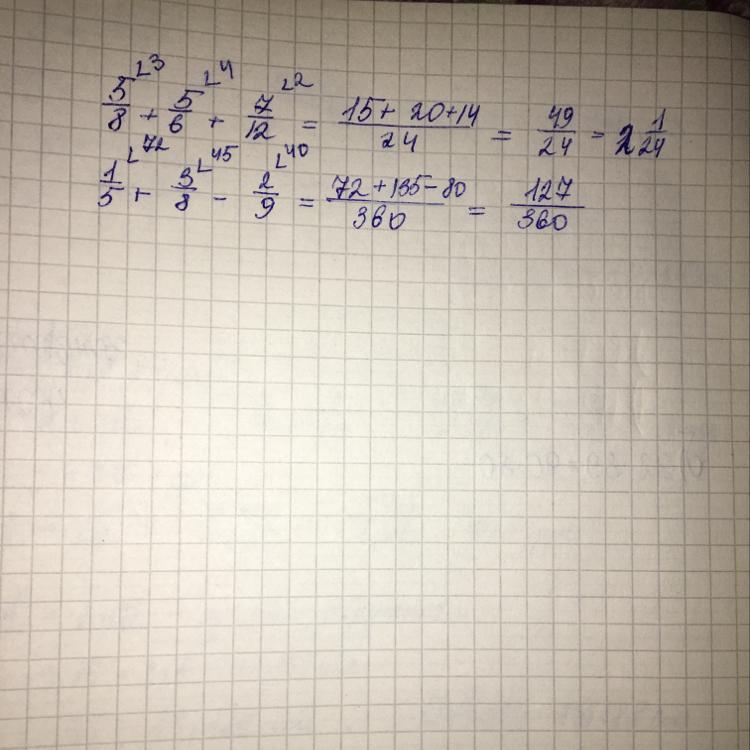 5/8 ⌞3 + 5/6 ⌞4 + 7/12 ⌞2 = (15 + 20 + 14)/24 = 49/24 = 2 1/24
1/5 ⌞72 + 3/8 ⌞45 - 2/9 ⌞40 = (72 + 135 - 80)/360 = 127/360